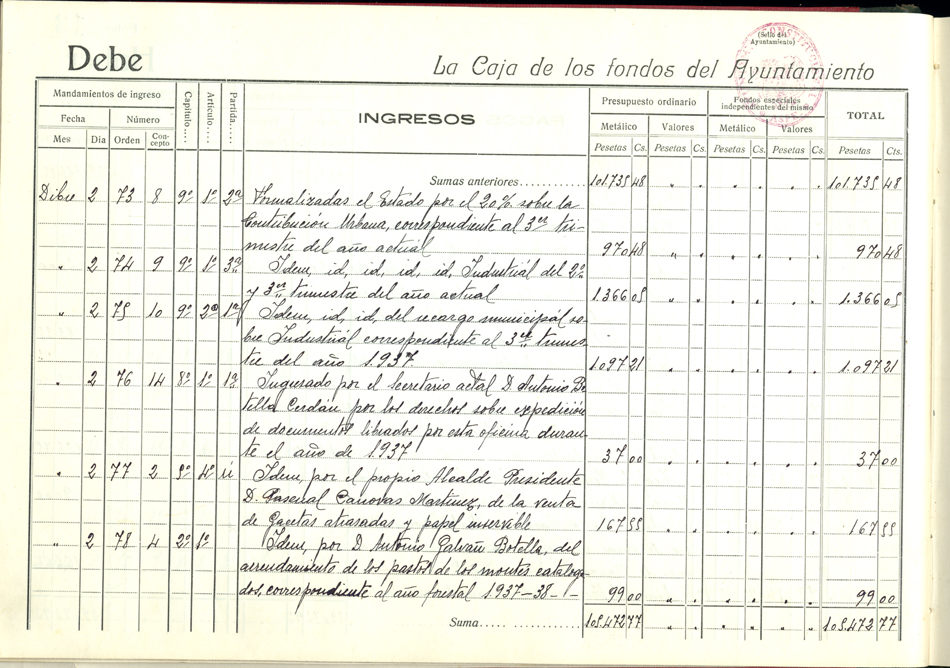 Debe
La Caja de los fondos del Ayuntamiento
(Sello del Ayuntamiento)
Mandamientos de ingreso
Fecha Número
Mes Día Orden Concepto
Capítulo.... Artículo.... Partida....
INGRESOS
Presupuesto ordinario Fondos especiales independientes del mismo TOTAL
Metálico Valores Metálico Valores
Pesetas Cs. Pesetas Cs. Pesetas Cs. Pesetas Cs. Pesetas Cts.
Sumas anteriores............ 101.735 48 " " " " " " 101.735 48
Dibre 2 73 8 9º 1º 2ª Formalizadas el Estado por el 20% sobre la
Contribución Urbana, correspondiente al 3er tri-
mestre del año actual 970 48 " " " " " " 970 48
" 2 74 9 9º 1º 3ª Idem, id, id, id, id, Industrial del 2º
y 3er trimestre del año actual 1.366 05 " " " " " " 1.366 05
" 2 75 10 9º 2º 1ª Idem, id, id, del recargo municipal so-
bre Industrial correspondiente al 3er trimes-
tre del año 1.937. 1.097 21 " " " " " " 1.097 21
" 2 76 14 8º 1º 1ª Ingresado por el Secretario actal D. Antonio Bo
tella Cerdán por los derechos sobre expedición
de documentos librados por esta oficina duran-
te el año de 1937 37 00 " " " " " " 37 00
" 2 77 2 5º 4º Idem, por el propio Alcalde Presidente
D. Pascual Canovas Martinez, de la venta
de Gacetas atrasadas y papel inservible 167 55 " " " " " " 167 55
" 2 78 4 2º 1º Idem, por D. Antonio Galvañ Botella, del
arrendamiento de los pastos de los montes cataloga-
dos, correspondiente al año forestal 1937-38 - - 99 00 " " " " " " 99 00
Suma..... ............ 105.472 77 " " " " " " 105.472 77